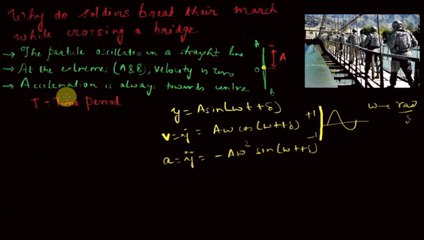 Why do soldiers break their march
while crossing a bridge
→ The particle oscillates in a straight line
→ At the extremes (A&B), velocity is zero
→ Acceleration is always towards centre
T - Time period
A
0
B
A
y = A sin(ωt + δ)
v = ẏ = Aω cos(ωt + δ)
a = ÿ = - Aω² sin(ωt + δ)
+1
-1
ω → rad/s